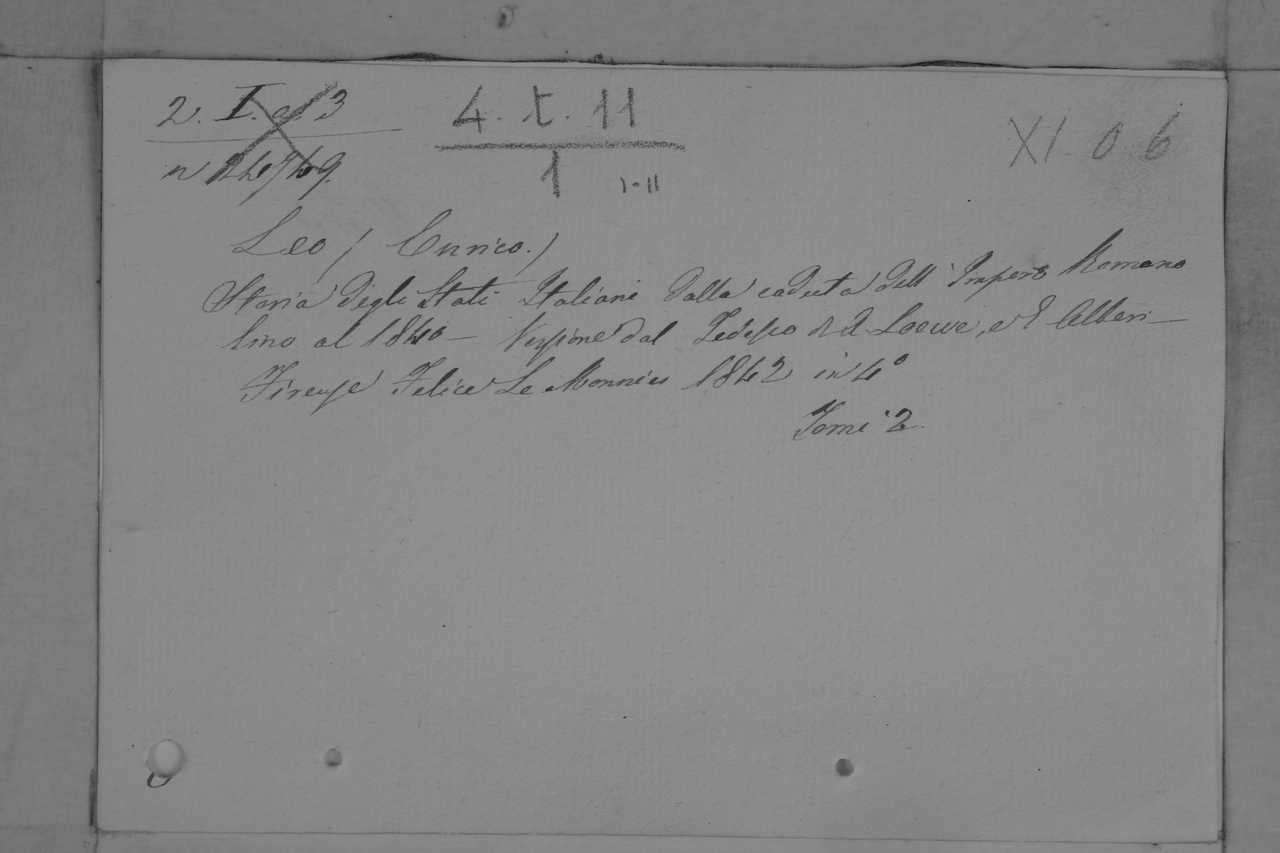 2. I. e 3
4. t. 11
XI 0 6
1
1-11
Leo / Enrico. /
Storia degli Stati Italiani dalla caduta dell'Impero Romano
fino al 1840 — Versione dal Tedesco di Loewe, e E Alberi —
Firenze Felice Le Monnier 1842 in 4°
Tomi 2.